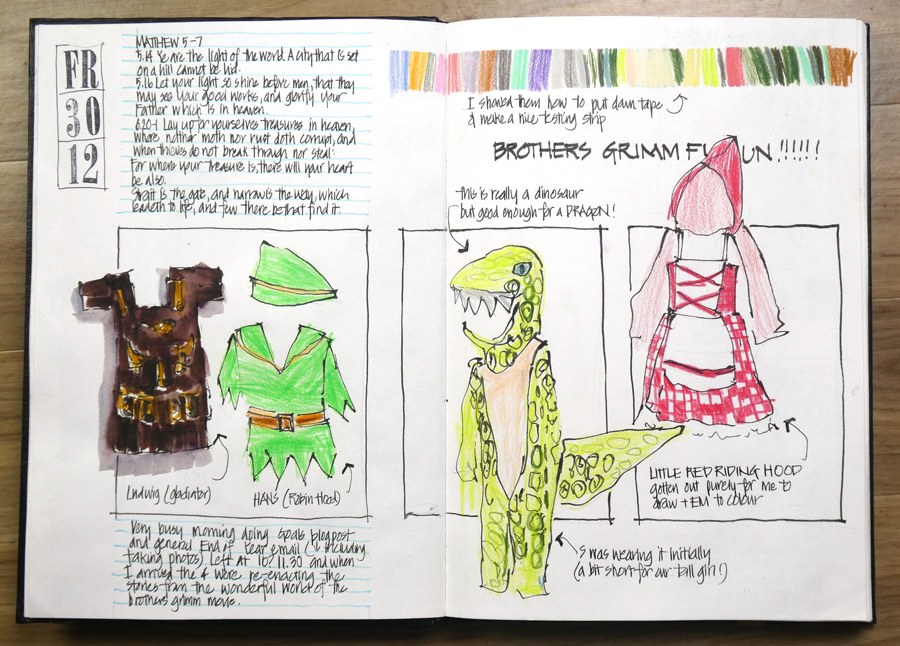 FR
30
12
MATTHEW 5-7
5.14 Ye are the light of the world. A city that is set
on a hill cannot be hid.
5.16 Let your light so shine before men, that they
may see your good works, and glorify your
Father which is in heaven.
6.20-1 Lay up for yourselves treasures in heaven,
where neither moth nor rust doth corrupt, and
when thieves do not break through nor steal:
For where your treasure is, there will your heart
be also.
Strait is the gate, and narrow is the way, which
leadeth to life, and few there be that find it.
Ludwig (gladiator)
HANS (Robin Hood)
Very busy morning doing Goals blogpost
and general End of Year email (including
taking photos) Left at 10/11.30 and when
I arrived the 4 were re-enacting the
stories from the wonderful world of the
brothers grimm movie.
I showed them how to put down tape
& make a nice testing strip
BROTHERS GRIMM FUN !!!!!!
this is really a dinosaur
but good enough for a DRAGON!
LITTLE RED RIDING HOOD
gotten out purely for me to
draw + EM to colour
S was wearing it initially
(a bit short for our tall girl!)